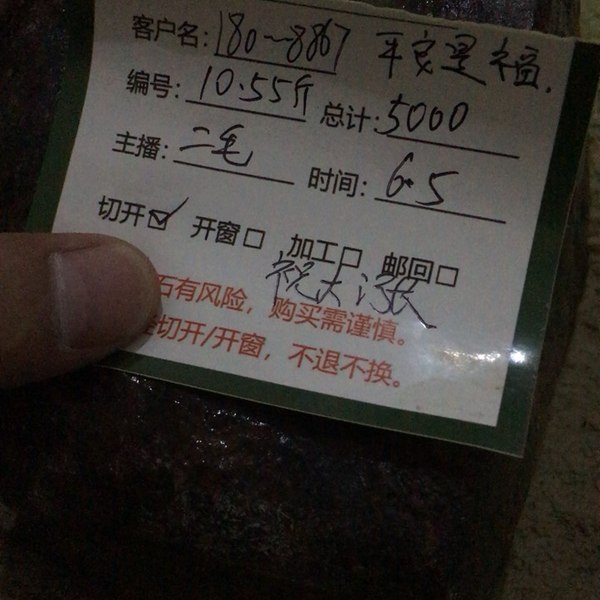 客户名: 180-8867 平安是福.
编号: 10.55斤 总计: 5000
主播: 二毛 时间: 6.5
切开☑ 开窗□ 加工□ 邮回□
祝大涨
石有风险，购买需谨慎。
切开/开窗，不退不换。